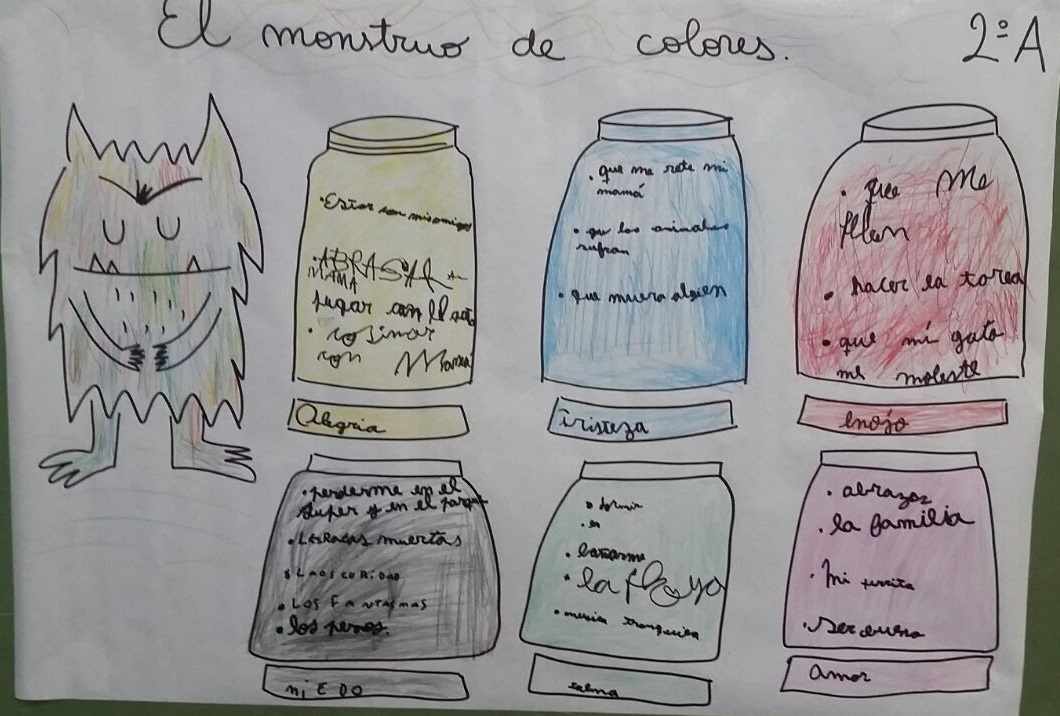 El monstruo de colores.
2º A
• Estar con mis amigos
• ABRASAR
MAMA
jugar con
• cosinar
con Mamá
Alegria
• que me rete mi
mamá
• que los animales
sufran
• que muera alguien
Tristeza
• que Me
• hacer la tarea
• que mi gato
me moleste
enojo
• perderme en el
super y en el parque
• LAS RAÑAS muertas
• LA OSCURIDAD
• LOS FANTASMAS
• los perros.
MiEDO
• dormir
• bañarme
• la playa
• musica tranquila
calma
• abrazos
• la familia
• Mi
• ser buena
Amor